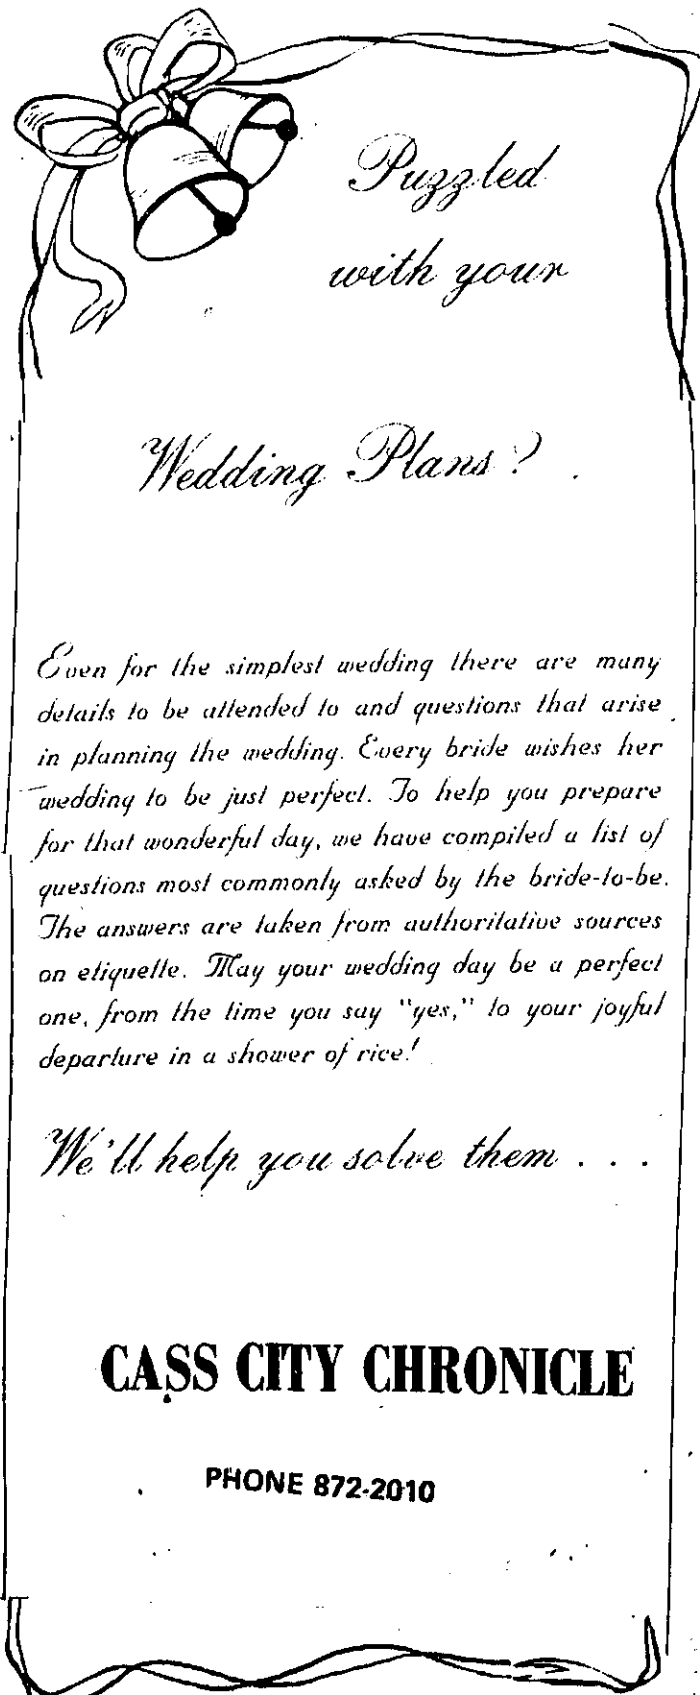 Puzzled
with your
Wedding Plans?
Even for the simplest wedding there are many
details to be attended to and questions that arise
in planning the wedding. Every bride wishes her
wedding to be just perfect. To help you prepare
for that wonderful day, we have compiled a list of
questions most commonly asked by the bride-to-be.
The answers are taken from authoritative sources
on etiquette. May your wedding day be a perfect
one, from the time you say "yes," to your joyful
departure in a shower of rice!
We'll help you solve them . . .
CASS CITY CHRONICLE
PHONE 872-2010